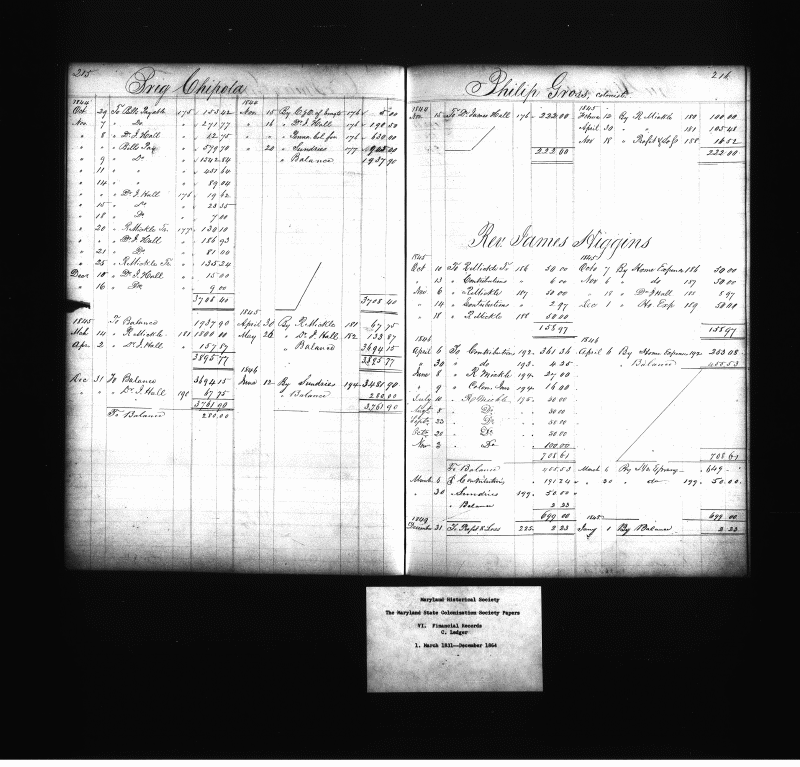 215
Brig Chipola
1844 1844
Oct 29 To Bills Payable 175 153 42 Nov 15 By C. & O. of Emigts 176 5 00
Nov 7 " " Do 271 77 " 16 " Dr J. Hall 176 190 50
" 8 " Dr J. Hall 62 75 " " 176 630 00
" " Bills Pay 579 70 " 20 " Sundries 177
" 9 " Do 1342 84 " Balance 1937 90
" 11 " " 451 64
" 14 " " 89 04
" " Dr J. Hall 176 19 62
" 15 " Do 23 35
" 18 " Do 7 00
" 20 R. Mickle Tr. 177 130 10
" " Dr J. Hall 186 93
" 21 " Do 81 00
" 25 " R. Mickle Tr 135 24
Decr 10 " Dr J. Hall 15 00
" 16 " Do 9 00
3708 40 3708 40
1845 1845
To Balance 1937 90 April 30 By R. Mickle 181 67 75
Mch 14 " R. Mickle 181 1800 00 May 26 " Dr J. Hall 182 133 87
Apr 2 " Dr J. Hall 157 87 " Balance 3694 15
3895 77 3895 77
1846
Dec 31 To Balance 3694 15 June 12 By Sundries 194 3481 90
" " Dr J. Hall 190 67 75 " Balance 280 00
3761 90 3761 90
To Balance 280 00
216
Philip Gross, colonist
1844 1845
Nov 15 To Dr James Hall 176 222 00 12 By R. Mickle 180 100 00
April 30 " " 181 105 48
Nov 18 " Profit & Loss 188 16 52
222 00 222 00
Rev James Higgins
1845 1845
Oct 10 To R. Mickle Tr 186 50 00 Octo 7 By Home Expenses 186 50 00
" 13 " Contributions " 6 00 Nov 6 " do 187 50 00
Nov 6 " R. Mickle 187 50 00 " 18 " Dr J Hall 188 5 97
" 14 " Contributions " 2 97 Dec 1 " Ho. Exp 189 50 00
" 18 " R. Mickle 188 50 00
155 97 155 97
1846 1846
April 6 To Contributions 192 361 36 April 6 By Home Expenses 192 253 08
" 30 " do 193 4 25 " Balance 455 53
June 8 " R Mickle 194 27 00
" 9 " Colon. Jnl 194 16 00
July 10 " R. Mickle 195 50 00
Augt 8 " Do 50 00
Septr 23 " Do 50 00
Octr 20 " Do 50 00
Nov 2 " Do 100 00
708 61 708 61
To Balance 455 53 March 6 By Ho Expenses 649
March 6 " Contributions 191 24 " 30 " do 199 50 00
" 30 " Sundries 199 50 00
" Balance 2 23
699 00 699 00
1849 1848
December 31 To Profit & Loss 225 2 23 Jany 1 By Balance 2 23
Maryland Historical Society
The Maryland State Colonization Society Papers
VI. Financial Records
C. Ledger
1. March 1831--December 1864